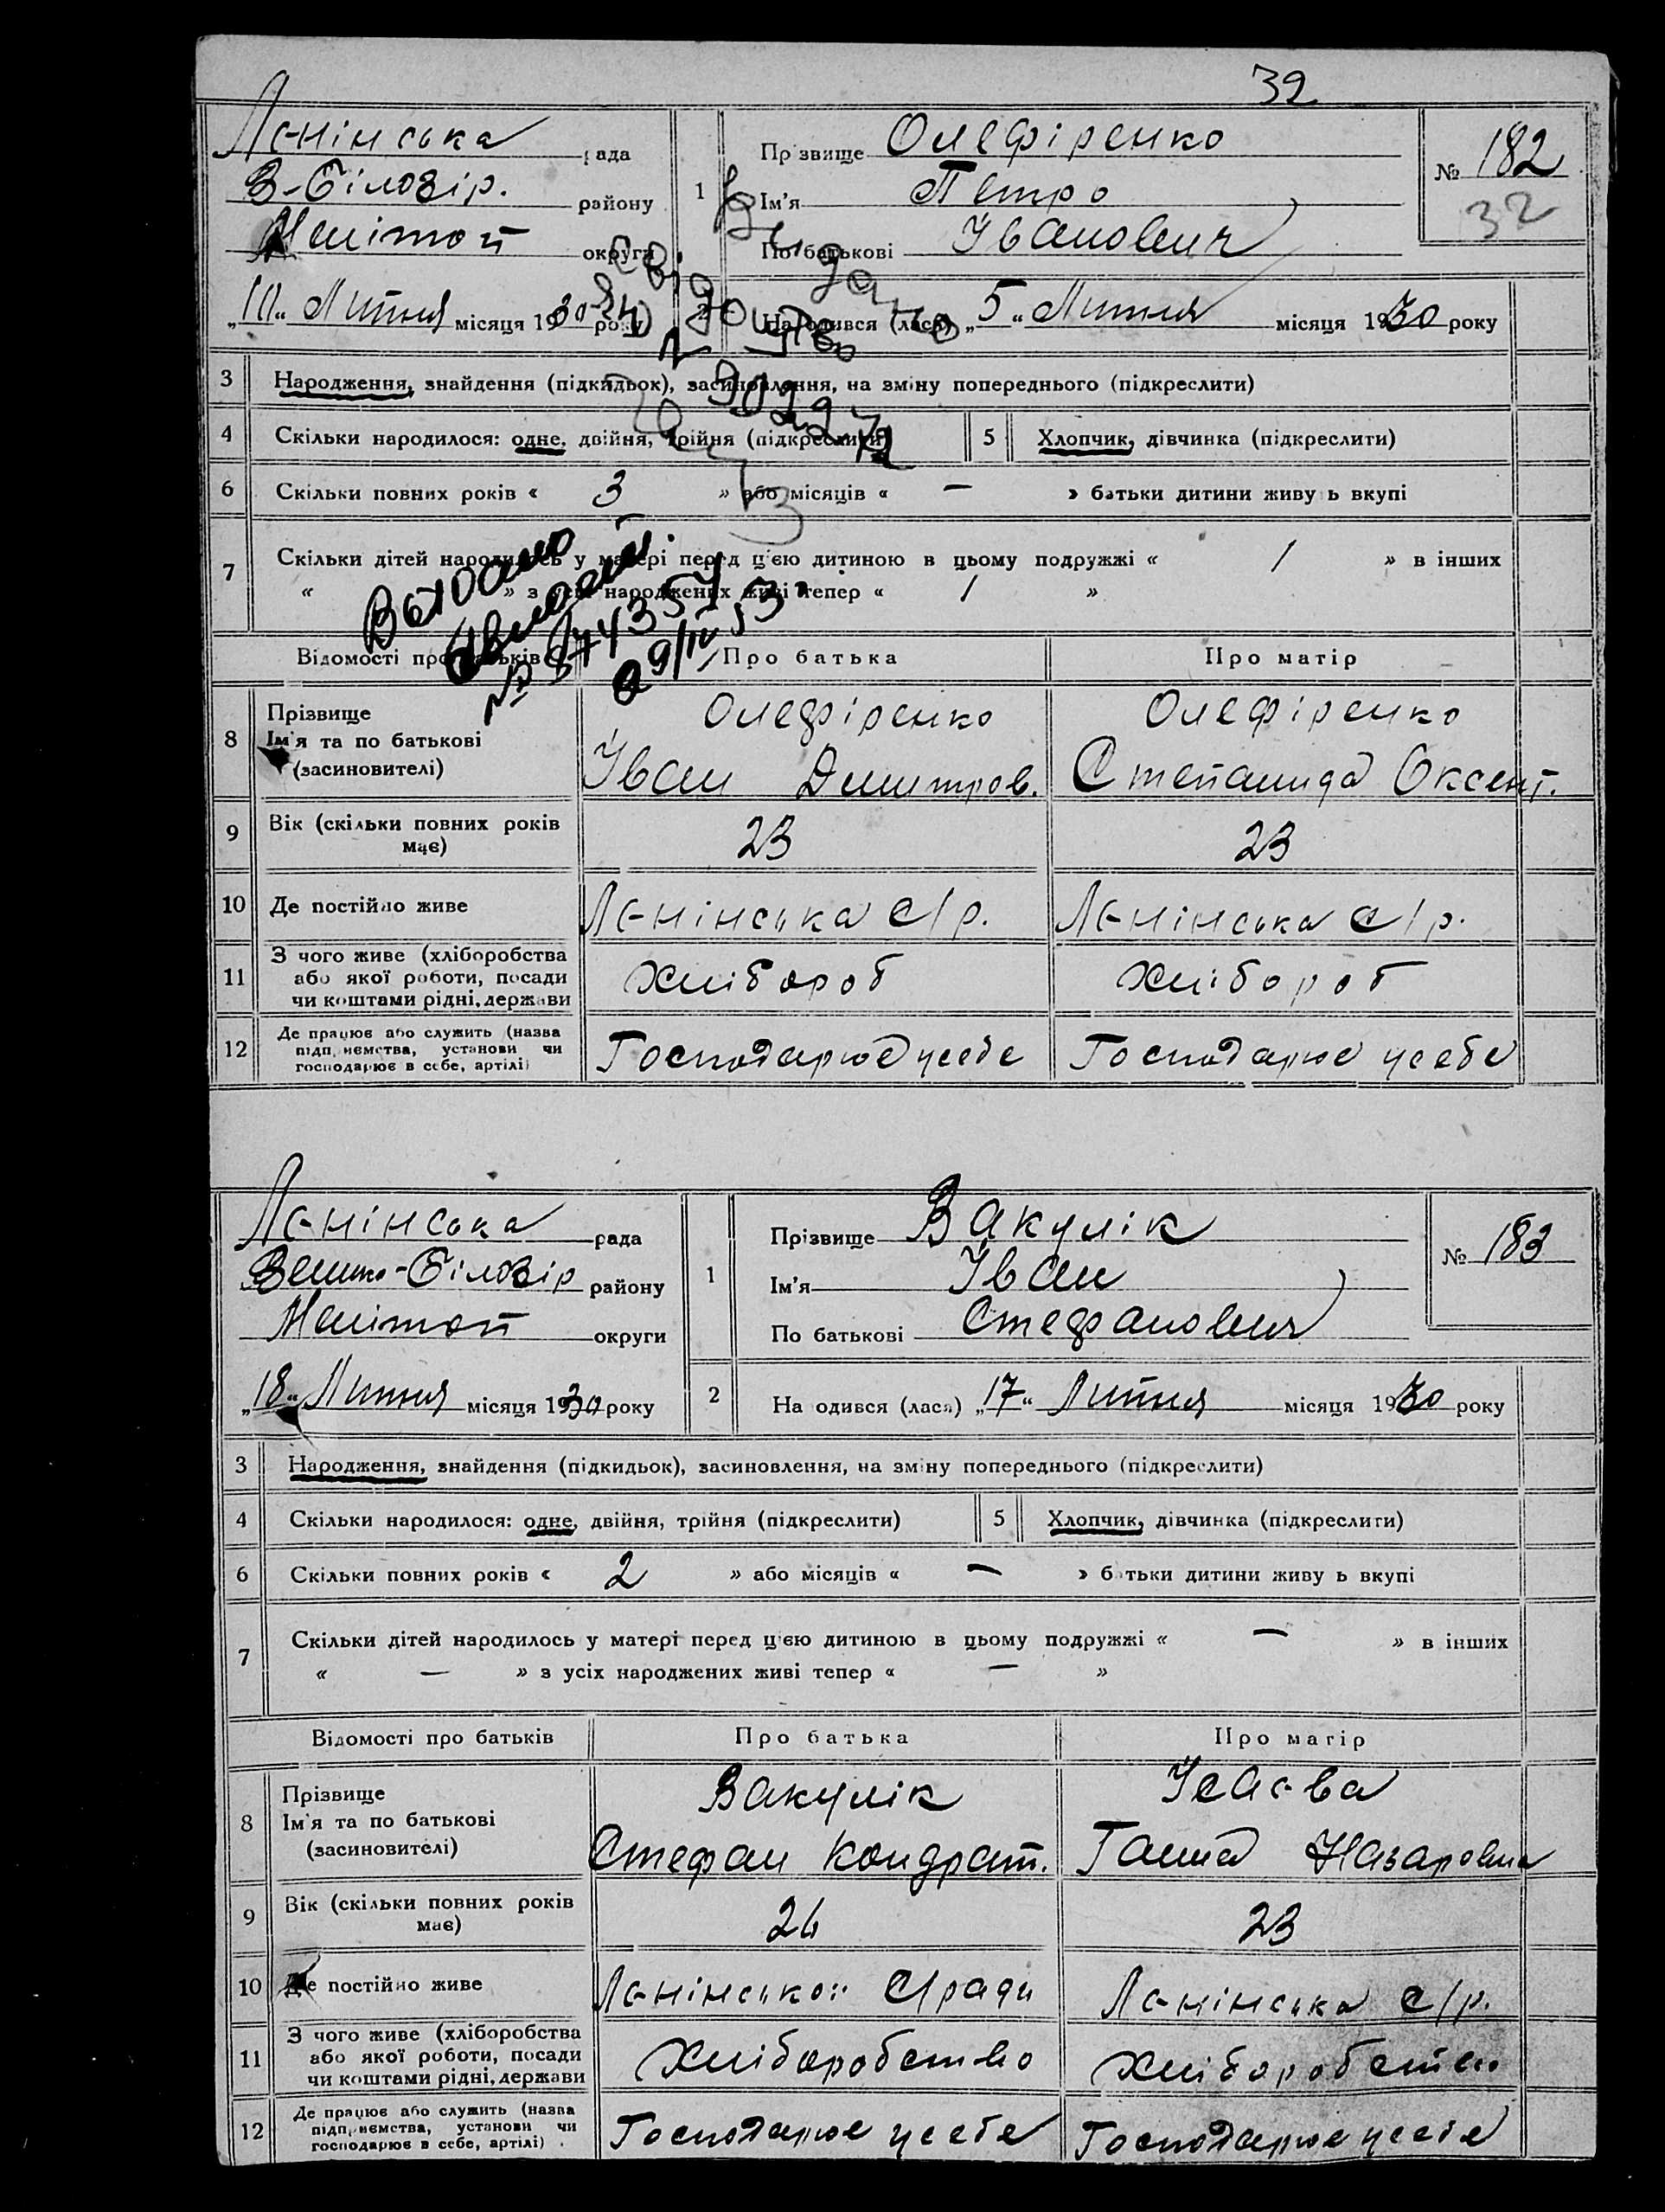 32
Ленінська рада
В-Білозір. району
Меліτοп округи
„10“ Липня місяця 1930 року
1
Прізвище Олефіренко
Ім'я Петро
По батькові Іванович
№ 182
32
2
Народився (лася) „5“ Липня місяця 1930 року
3 Народження, знайдення (підкидьок), засиновлення, на зміну попереднього (підкреслити)
4 Скільки народилося: одне, двійня, трійня (підкреслити)
5 Хлопчик, дівчинка (підкреслити)
6 Скільки повних років « 3 » або місяців « — » батьки дитини живуть вкупі
7 Скільки дітей народилось у матері перед цією дитиною в цьому подружжі « 1 » в інших
« » з усіх народжених живі тепер « 1 »
Выдано
№ 874357
Відомості про батьків Про батька Про матір
8 Прізвище
Ім'я та по батькові
(засиновителі)
Олефіренко
Іван Дмитров.
Олефіренко
Степанида Оксент.
9 Вік (скільки повних років
має)
23
23
10 Де постійно живе
Ленінська с/р.
Ленінська с/р.
11 З чого живе (хліборобства
або якої роботи, посади
чи коштами рідні, держави
Хлібороб
Хлібороб
12 Де працює або служить (назва
підприємства, установи чи
господарює в себе, артілі)
Господарює усебе
Господарює усебе
Ленінська рада
Велико-Білозір району
Меліτοп округи
„18“ Липня місяця 1930 року
1
Прізвище Вакулік
Ім'я Іван
По батькові Стефанович
№ 183
2 Народився (лася) „17“ Липня місяця 1930 року
3 Народження, знайдення (підкидьок), засиновлення, на зміну попереднього (підкреслити)
4 Скільки народилося: одне, двійня, трійня (підкреслити)
5 Хлопчик, дівчинка (підкреслити)
6 Скільки повних років « 2 » або місяців « — » батьки дитини живуть вкупі
7 Скільки дітей народилось у матері перед цією дитиною в цьому подружжі « — » в інших
« — » з усіх народжених живі тепер « — »
Відомості про батьків Про батька Про матір
8 Прізвище
Ім'я та по батькові
(засиновителі)
Вакулік
Стефан Кондрат.
Ісаєва
Ганна Назаровна
9 Вік (скільки повних років
має)
26
23
10 Де постійно живе
Ленінської С/ради
Ленінська с/р.
11 З чого живе (хліборобства
або якої роботи, посади
чи коштами рідні, держави
Хліборобство
Хліборобство
12 Де працює або служить (назва
підприємства, установи чи
господарює в себе, артілі)
Господарює усебе
Господарює усебе